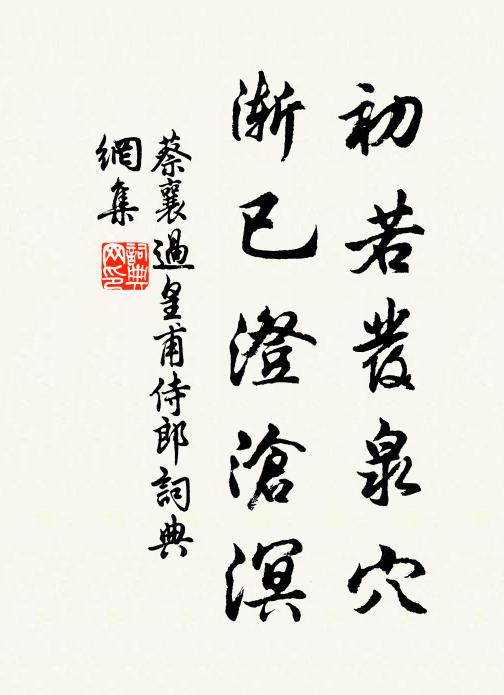 初若發泉穴
漸已澄滄溟
蔡襄過皇甫侍郎詞典
網集
詞典网印